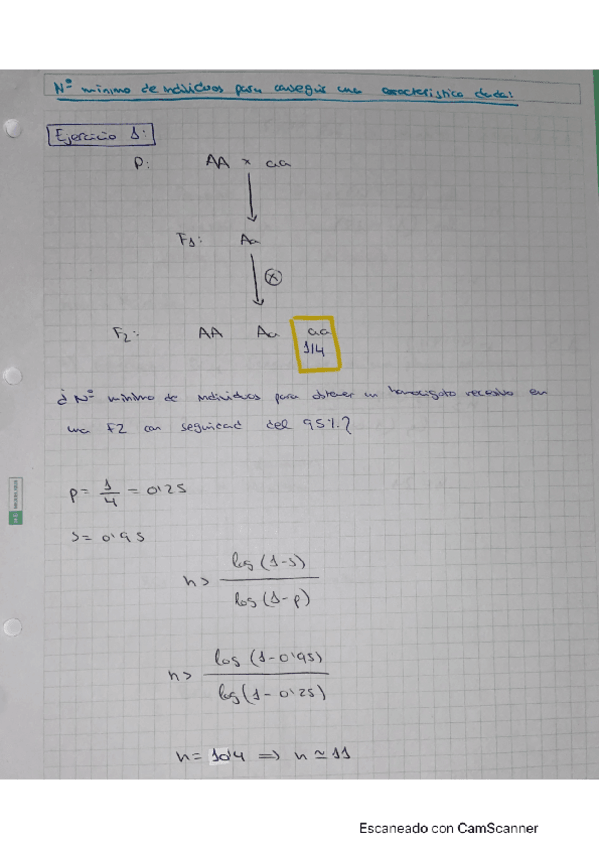 Nº mínimo de individuos para conseguir una característica dada:
Ejercicio 1:
P: AA x aa
F1: Aa
x
F2: AA Aa aa
1/4
¿Nº mínimo de individuos para obtener un homocigoto recesivo en
una F2 con seguridad del 95%?
p= 1/4 = 0'25
s= 0'95
n> log (1-s) / log (1-p)
n> log (1-0'95) / log (1-0'25)
n= 10'4 => n ≃ 11
Escaneado con CamScanner